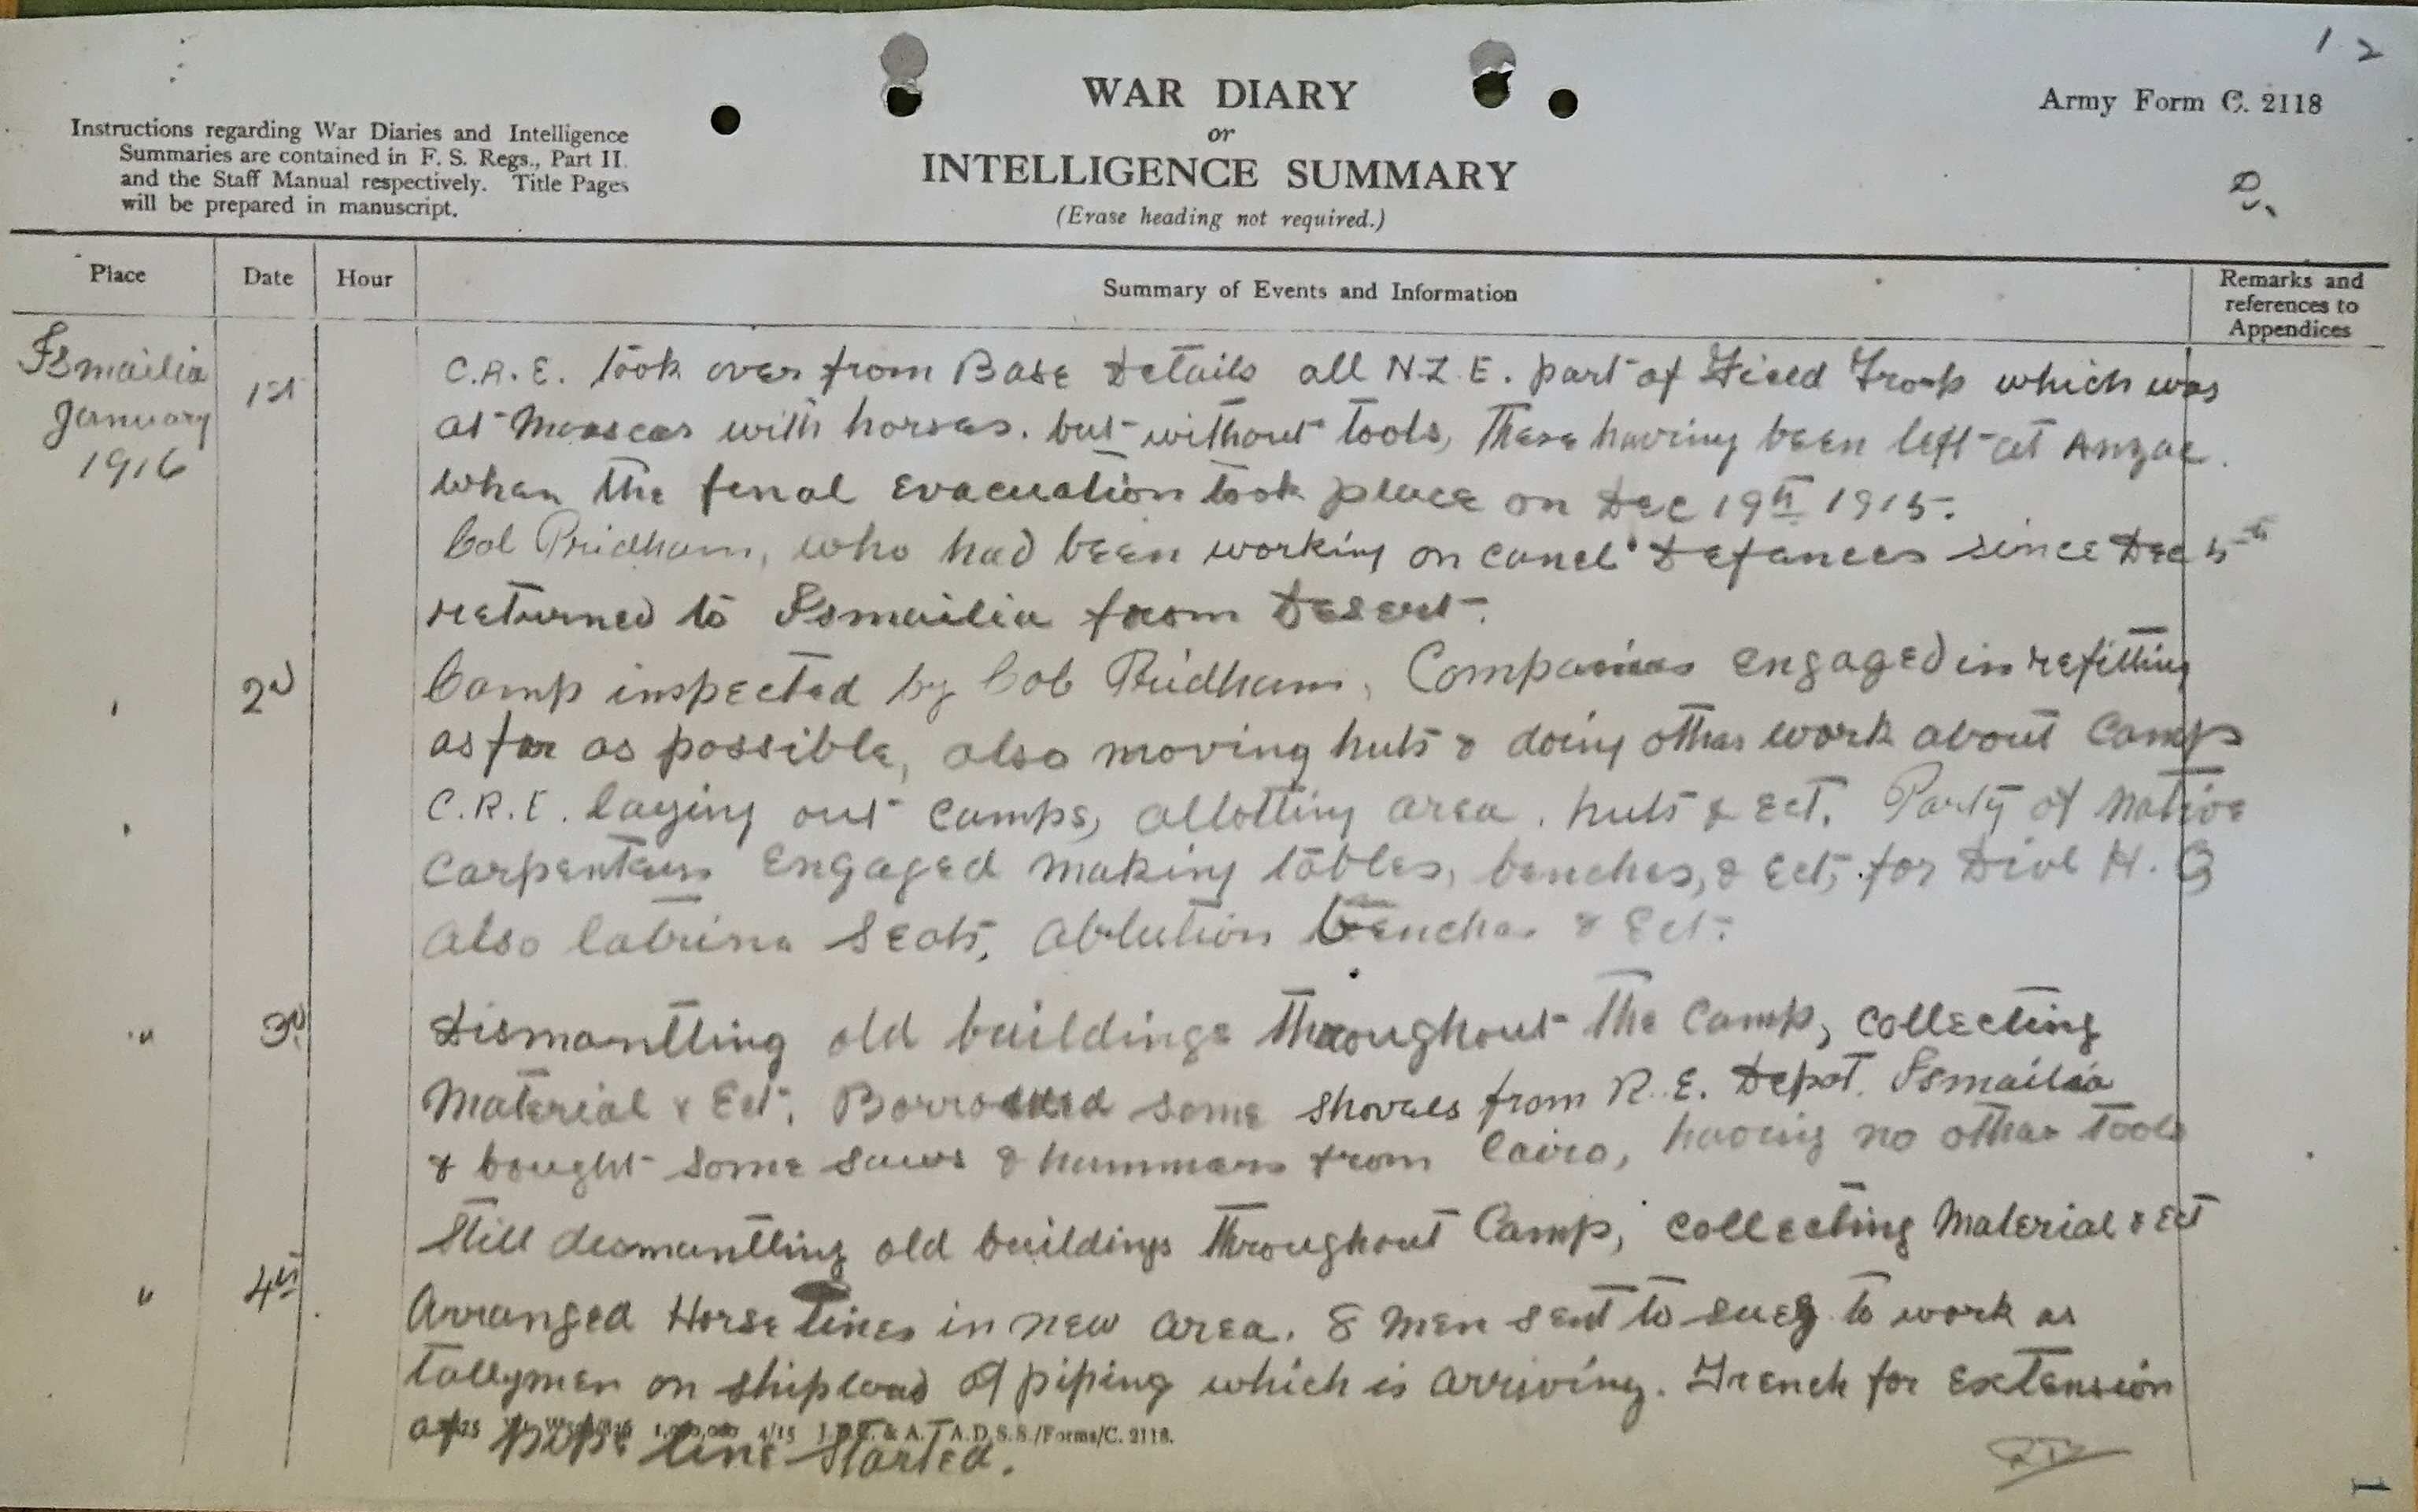 1 2
Army Form C. 2118
Instructions regarding War Diaries and Intelligence
Summaries are contained in F. S. Regs., Part II.
and the Staff Manual respectively. Title Pages
will be prepared in manuscript.
WAR DIARY
or
INTELLIGENCE SUMMARY
(Erase heading not required.)
Place
Date
Hour
Summary of Events and Information
Remarks and
references to
Appendices
Ismailia
January
1916
1st
C.R.E. took over from Base Details all N.Z.E. part of Field Troop which was
at Moascar with horses. but without tools, these having been left at Anzac.
when the final evacuation took place on Dec 19th 1915.
Col Pridham, who had been working on canal Defences since Dec 5th
returned to Ismailia from Desert.
2d
Camp inspected by Col Pridham, Companies engaged in refitting
as far as possible, also moving huts & doing other work about Camp
C.R.E. laying out camps, allotting area, huts & Ect. Party of native
carpenters engaged making tables, benches, & Ect, for Divl H.Q
also latrine seats, ablution benches & Ect.
" 3d
Dismantling old buildings throughout the Camp, collecting
Material & Ect. Borrowed some shovels from R.E. Depot. Ismailia
& bought some saws & hammers from Cairo, having no other tools
" 4th
Still dismantling old buildings throughout Camp, collecting Material & Ect
Arranged Horse lines in new area. 8 men sent to Suez to work as
tallymen on shipload of piping which is arriving. Trench for extension
of pipe line started.
1,000,000 4/15 J.B.C. & A. A.D.S.S./Forms/C. 2118.
1